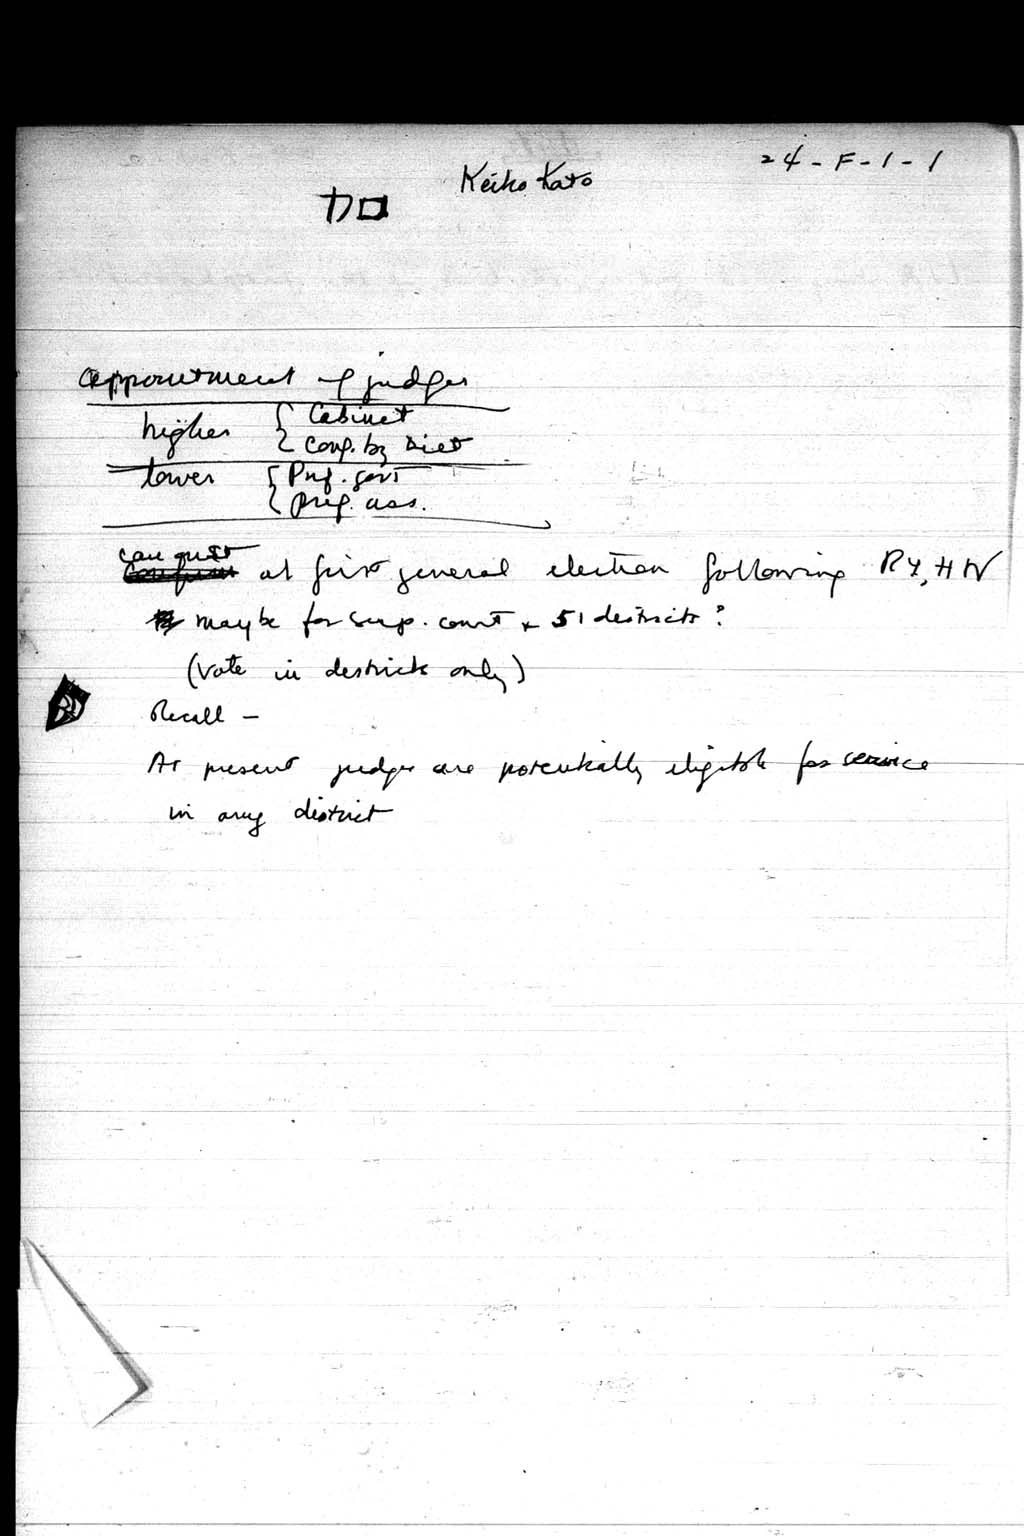 24-F-1-1
Keiko Kato
カロ
appointment of judges
higher { Cabinet
conf. by Diet
lower { Pref. govt
pref. ass.
can oust
confirm at first general election following RY, HW
maybe for sup. court & 51 districts?
(vote in districts only)
Recall —
At present judges are potentially eligible for service
in any district